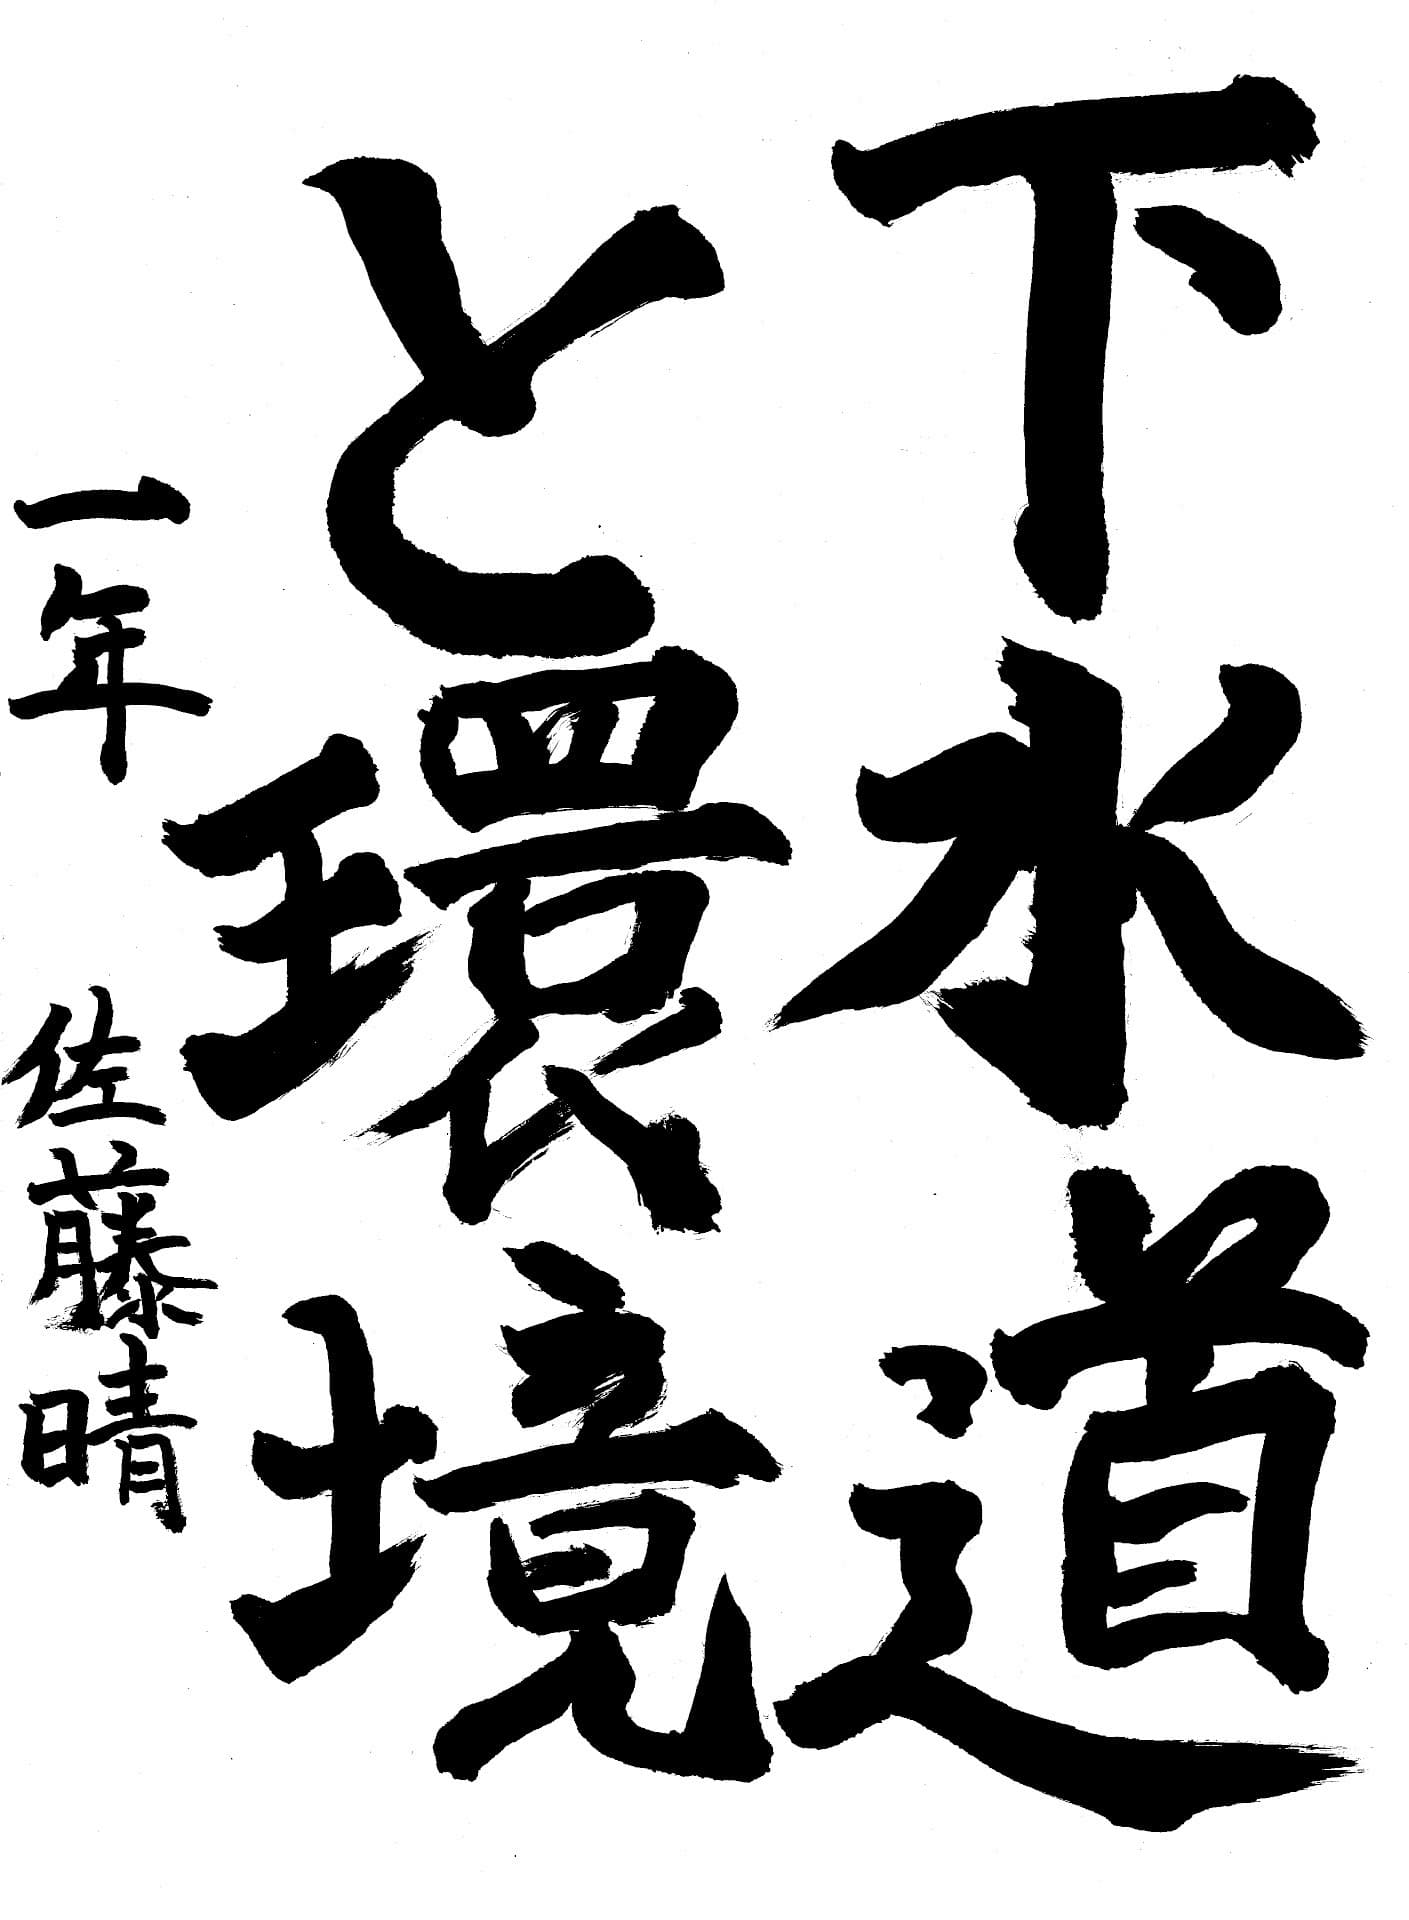 下水道
と環境
一年 佐藤晴